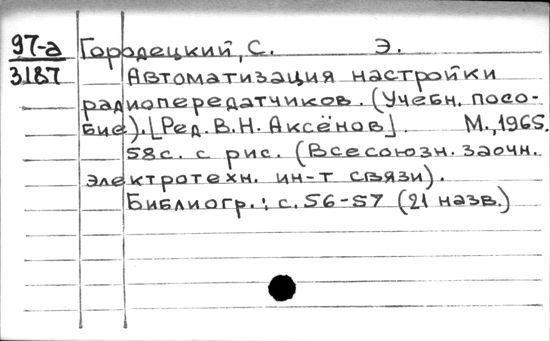 97-а Городецкий, С. Э.
3187 Автоматизация настройки
радиопередатчиков. (Учебн. посо-
бие). [Ред. В.Н. Аксёнов]. М., 1965.
58с. с рис. (Всесоюзн. заочн.
электротехн. ин-т связи).
Библиогр.: с. 56-57 (21 назв.)